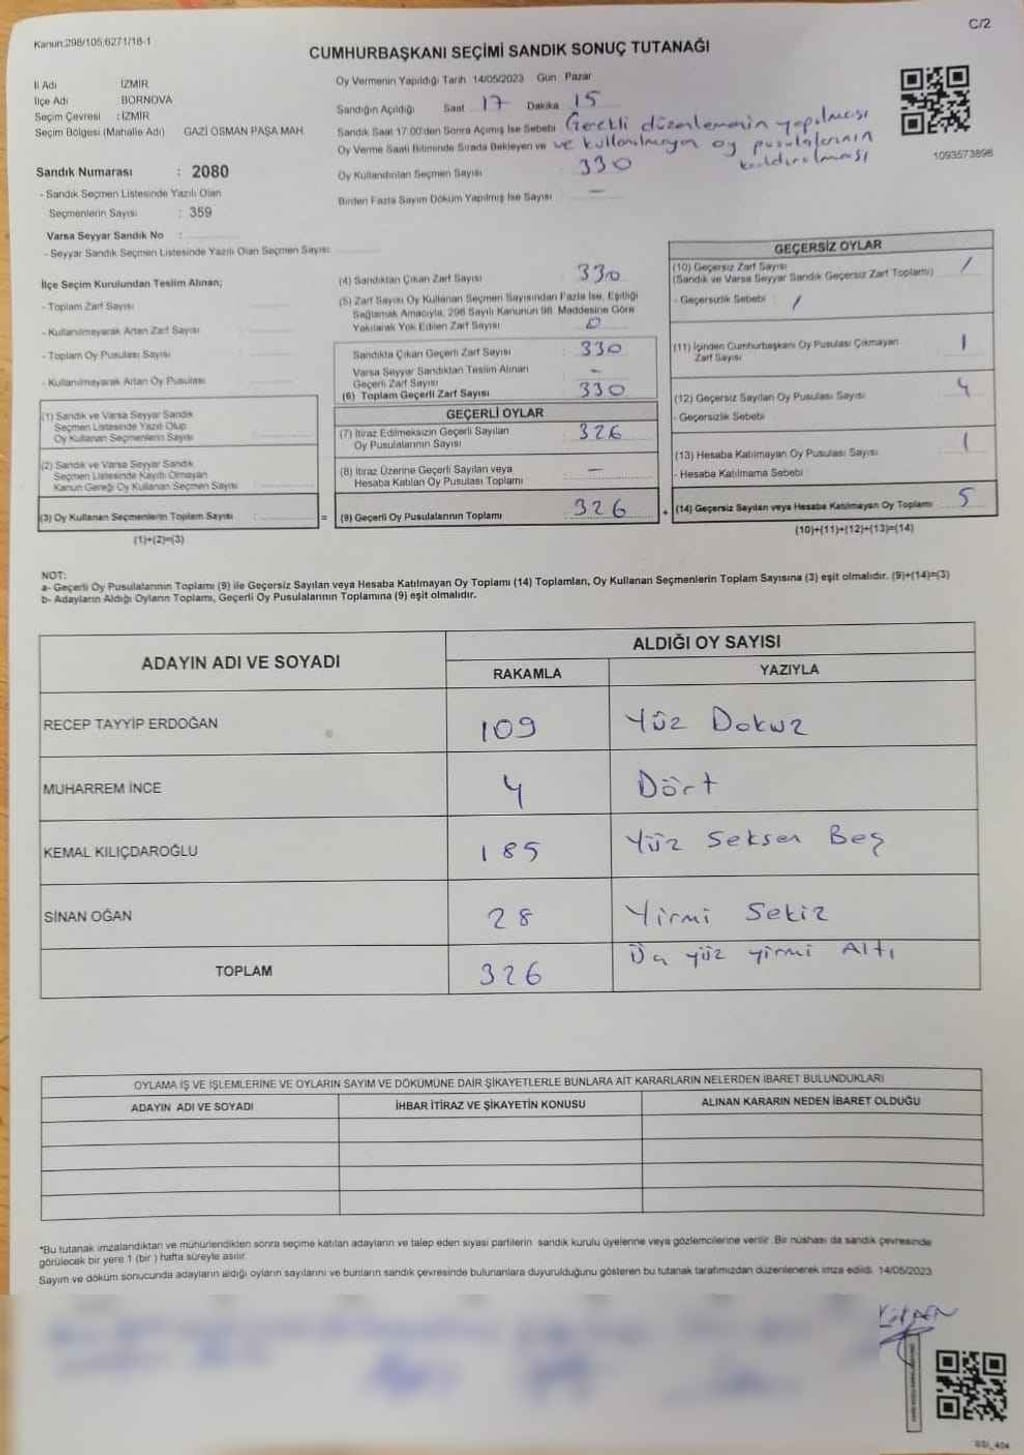 Kanun:298/105;6271/18-1
C/2
CUMHURBAŞKANI SEÇİMİ SANDIK SONUÇ TUTANAĞI
İl Adı İZMİR
İlçe Adı BORNOVA
Seçim Çevresi : İZMİR
Seçim Bölgesi (Mahalle Adı) GAZİ OSMAN PAŞA MAH.
Oy Vermenin Yapıldığı Tarih 14/05/2023 Gün Pazar
Sandığın Açıldığı Saat 17 Dakika 15
Sandık Saat 17:00'den Sonra Açılmış İse Sebebi Gerekli düzenlemenin yapılması
Oy Verme Saati Bitiminde Sırada Bekleyen ve ve kullanılmayan oy pusulalarının
kaldırılması
Oy Kullandırılan Seçmen Sayısı 330
Birden Fazla Sayım Döküm Yapılmış İse Sayısı —
1093573898
Sandık Numarası : 2080
- Sandık Seçmen Listesinde Yazılı Olan
Seçmenlerin Sayısı : 359
Varsa Seyyar Sandık No :
- Seyyar Sandık Seçmen Listesinde Yazılı Olan Seçmen Sayısı
İlçe Seçim Kurulundan Teslim Alınan;
- Toplam Zarf Sayısı
- Kullanılmayarak Artan Zarf Sayısı
- Toplam Oy Pusulası Sayısı
- Kullanılmayarak Artan Oy Pusulası
(1) Sandık ve Varsa Seyyar Sandık
Seçmen Listesinde Yazılı Olup
Oy Kullanan Seçmenlerin Sayısı
(2) Sandık ve Varsa Seyyar Sandık
Seçmen Listesinde Kayıtlı Olmayan
Kanun Gereği Oy Kullanan Seçmen Sayısı
(3) Oy Kullanan Seçmenlerin Toplam Sayısı =
(1)+(2)=(3)
(4) Sandıktan Çıkan Zarf Sayısı 330
(5) Zarf Sayısı Oy Kullanan Seçmen Sayısından Fazla İse, Eşitliği
Sağlamak Amacıyla, 298 Sayılı Kanunun 98. Maddesine Göre
Yakılarak Yok Edilen Zarf Sayısı 0
Sandıkta Çıkan Geçerli Zarf Sayısı 330
Varsa Seyyar Sandıktan Teslim Alınan
Geçerli Zarf Sayısı -
(6) Toplam Geçerli Zarf Sayısı 330
GEÇERLİ OYLAR
(7) İtiraz Edilmeksizin Geçerli Sayılan
Oy Pusulalarının Sayısı 326
(8) İtiraz Üzerine Geçerli Sayılan veya
Hesaba Katılan Oy Pusulası Toplamı —
(9) Geçerli Oy Pusulalarının Toplamı 326 +
GEÇERSİZ OYLAR
(10) Geçersiz Zarf Sayısı /
(Sandık ve Varsa Seyyar Sandık Geçersiz Zarf Toplamı)
- Geçersizlik Sebebi /
(11) İçinden Cumhurbaşkanı Oy Pusulası Çıkmayan 1
Zarf Sayısı
(12) Geçersiz Sayılan Oy Pusulası Sayısı 4
- Geçersizlik Sebebi
(13) Hesaba Katılmayan Oy Pusulası Sayısı 1
- Hesaba Katılmama Sebebi
(14) Geçersiz Sayılan veya Hesaba Katılmayan Oy Toplamı 5
(10)+(11)+(12)+(13)=(14)
NOT:
a- Geçerli Oy Pusulalarının Toplamı (9) ile Geçersiz Sayılan veya Hesaba Katılmayan Oy Toplamı (14) Toplamları, Oy Kullanan Seçmenlerin Toplam Sayısına (3) eşit olmalıdır. (9)+(14)=(3)
b- Adayların Aldığı Oyların Toplamı, Geçerli Oy Pusulalarının Toplamına (9) eşit olmalıdır.
ADAYIN ADI VE SOYADI
ALDIĞI OY SAYISI
RAKAMLA YAZIYLA
RECEP TAYYİP ERDOĞAN 109 Yüz Dokuz
MUHARREM İNCE 4 Dört
KEMAL KILIÇDAROĞLU 185 Yüz Seksen Beş
SİNAN OĞAN 28 Yirmi Sekiz
TOPLAM 326 Üç yüz yirmi Altı
OYLAMA İŞ VE İŞLEMLERİNE VE OYLARIN SAYIM VE DÖKÜMÜNE DAİR ŞİKAYETLERLE BUNLARA AİT KARARLARIN NELERDEN İBARET BULUNDUKLARI
ADAYIN ADI VE SOYADI İHBAR İTİRAZ VE ŞİKAYETİN KONUSU ALINAN KARARIN NEDEN İBARET OLDUĞU
*Bu tutanak imzalandıktan ve mühürlendikten sonra seçime katılan adayların ve talep eden siyasi partilerin sandık kurulu üyelerine veya gözlemcilerine verilir. Bir nüshası da sandık çevresinde
görülecek bir yere 1 (bir) hafta süreyle asılır.
Sayım ve döküm sonucunda adayların aldığı oyların sayılarını ve bunların sandık çevresinde bulunanlara duyurulduğunu gösteren bu tutanak tarafımızdan düzenlenerek imza edildi. 14/05/2023